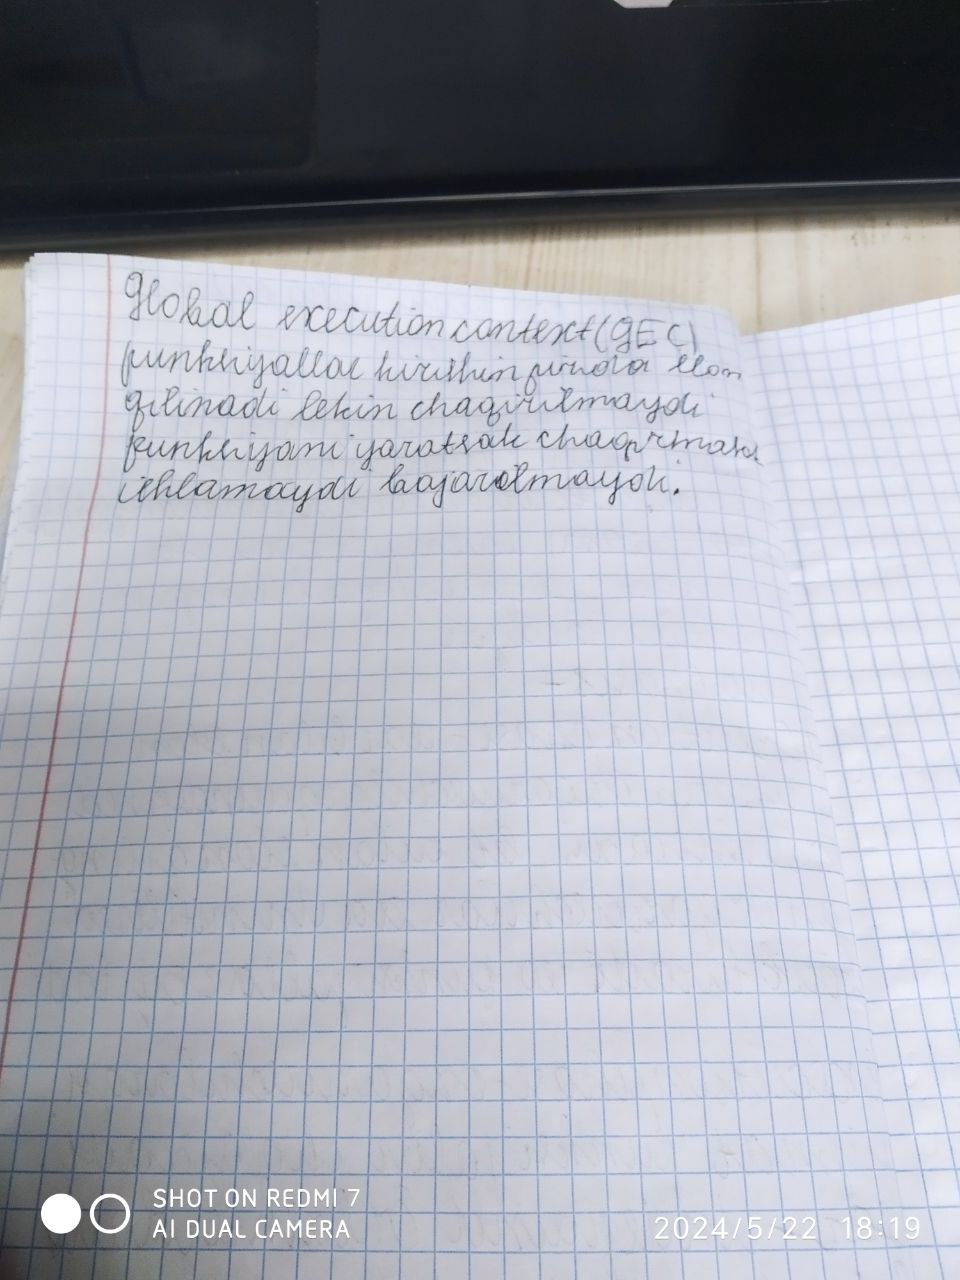 Global execution context (GEC)
funksiyallar kirishin e'lon
qilinadi lekin chaqirilmaydi
funksiyani yaratsak chaqirmasak
ishlamaydi bajarolmaydi.
SHOT ON REDMI 7
AI DUAL CAMERA
2024/5/22 18:19